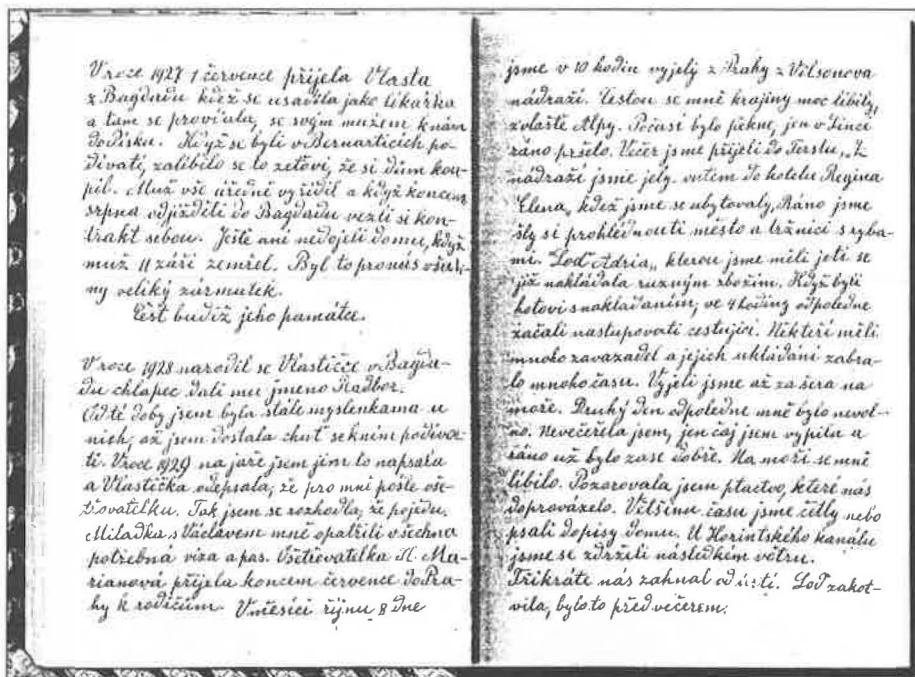 V roce 1927 1 července přijela Vlasta
z Bagdadu kdež se usadila jako lékařka
a tam se provdala, se svým mužem k nám
do Písku. Když se byli v Bernarticích po-
dívati, zalíbilo se to zeťovi, že si dům kou-
pil. Muž vše úředně vyřídil a když koncem
srpna odjížděli do Bagdadu vezli si kon-
trakt sebou. Ještě ani nedojeli domu, když
muž 11 září zemřel. Byl to pro nás všech-
ny veliký zármutek.
Čest budiž jeho památce.
V roce 1928 narodil se Vlastičce v Bagda-
du chlapec dali mu jmeno Radbor.
Od té doby jsem byla stále myslenkama u
nich, až jsem dostala chuť se k ním podíva-
ti. V roce 1929 na jaře jsem jim to napsala
a Vlastička odepsala, že pro mní pošle oše-
třovatelku. Tak jsem se rozhodla, že pojedu.
Miladka s Václavem mně opatřili všechna
potřebná viza a pas. Ošetřovatelka H. Ma-
rianová přijela koncem července do Pra-
hy k rodičům. V měsíci říjnu 8 dne
jsme v 10 hodin vyjely z Prahy z Vilsonova
nádraží. Cestou se mně krajiny moc líbily,
zvlaště Alpy. Počasí bylo pěkné, jen v Linci
ráno pršelo. Večer jsme přijeli do Terstu. Z
nádraží jsme jely autem do hotelu Regina
Elena„ kdež jsme se ubytovaly, Ráno jsme
šly si prohlédnouti město a tržnici s ryba-
mi. "Loď Adria„ kterou jsme měli jeti se
již nakládala ruzným zbožím. Když byli
hotovi s nakládaním, ve 4 hodiny odpoledne
začali nastupovati cestující. Někteří měli
mnoho zavazadel a jejich ukládání zabra-
lo mnoho času. Vyjeli jsme až za šera na
moře. Druhý den odpoledne mně bylo nevol-
no. Nevečeřela jsem, jen čaj jsem vypila a
ráno už bylo zase dobře. Na moři se mně
líbilo. Pozorovala jsem ptactvo, které nás
doprovázelo. Většinu času jsme četly nebo
psali dopisy domu. U Korintského kanálu
jsme se zdrželi následkím větru.
Třikráte nás zahnal od ústí. Loď zakot-
vila, bylo to před večerem.